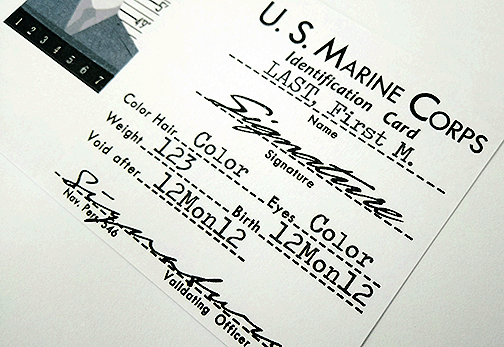 1 2 3 4 5 6 7
U. S. MARINE CORPS
Identification Card
LAST, First M.
Name
Signature
Signature
Color Hair Color Eyes Color
Weight 123 Birth 12Mon12
Void after 12Mon12
Signature
Nav. Per 546
Validating Officer